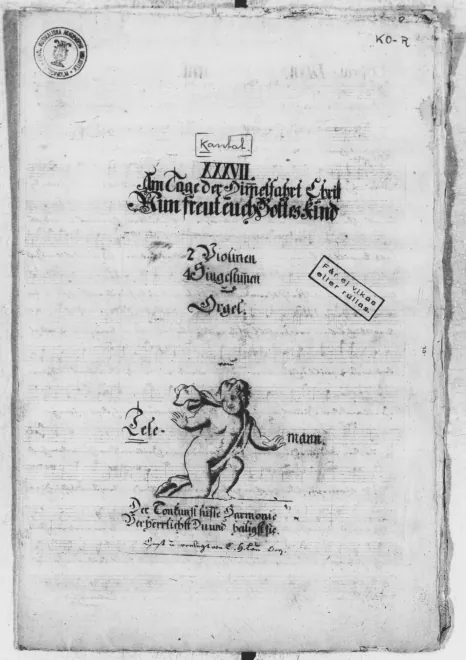 KO-R
Kantat.
XXXVII.
Am Tage der Himelfahrt Christ
Nun freut euch Gottes Kind
2 Violinen
4 Singestimen
u
Orgel.
von
Tele-
mann.
Der Tonkunst süsse Harmonie
Verherrlichst Du und heiligst sie.
Får ej vikas
eller rullas.